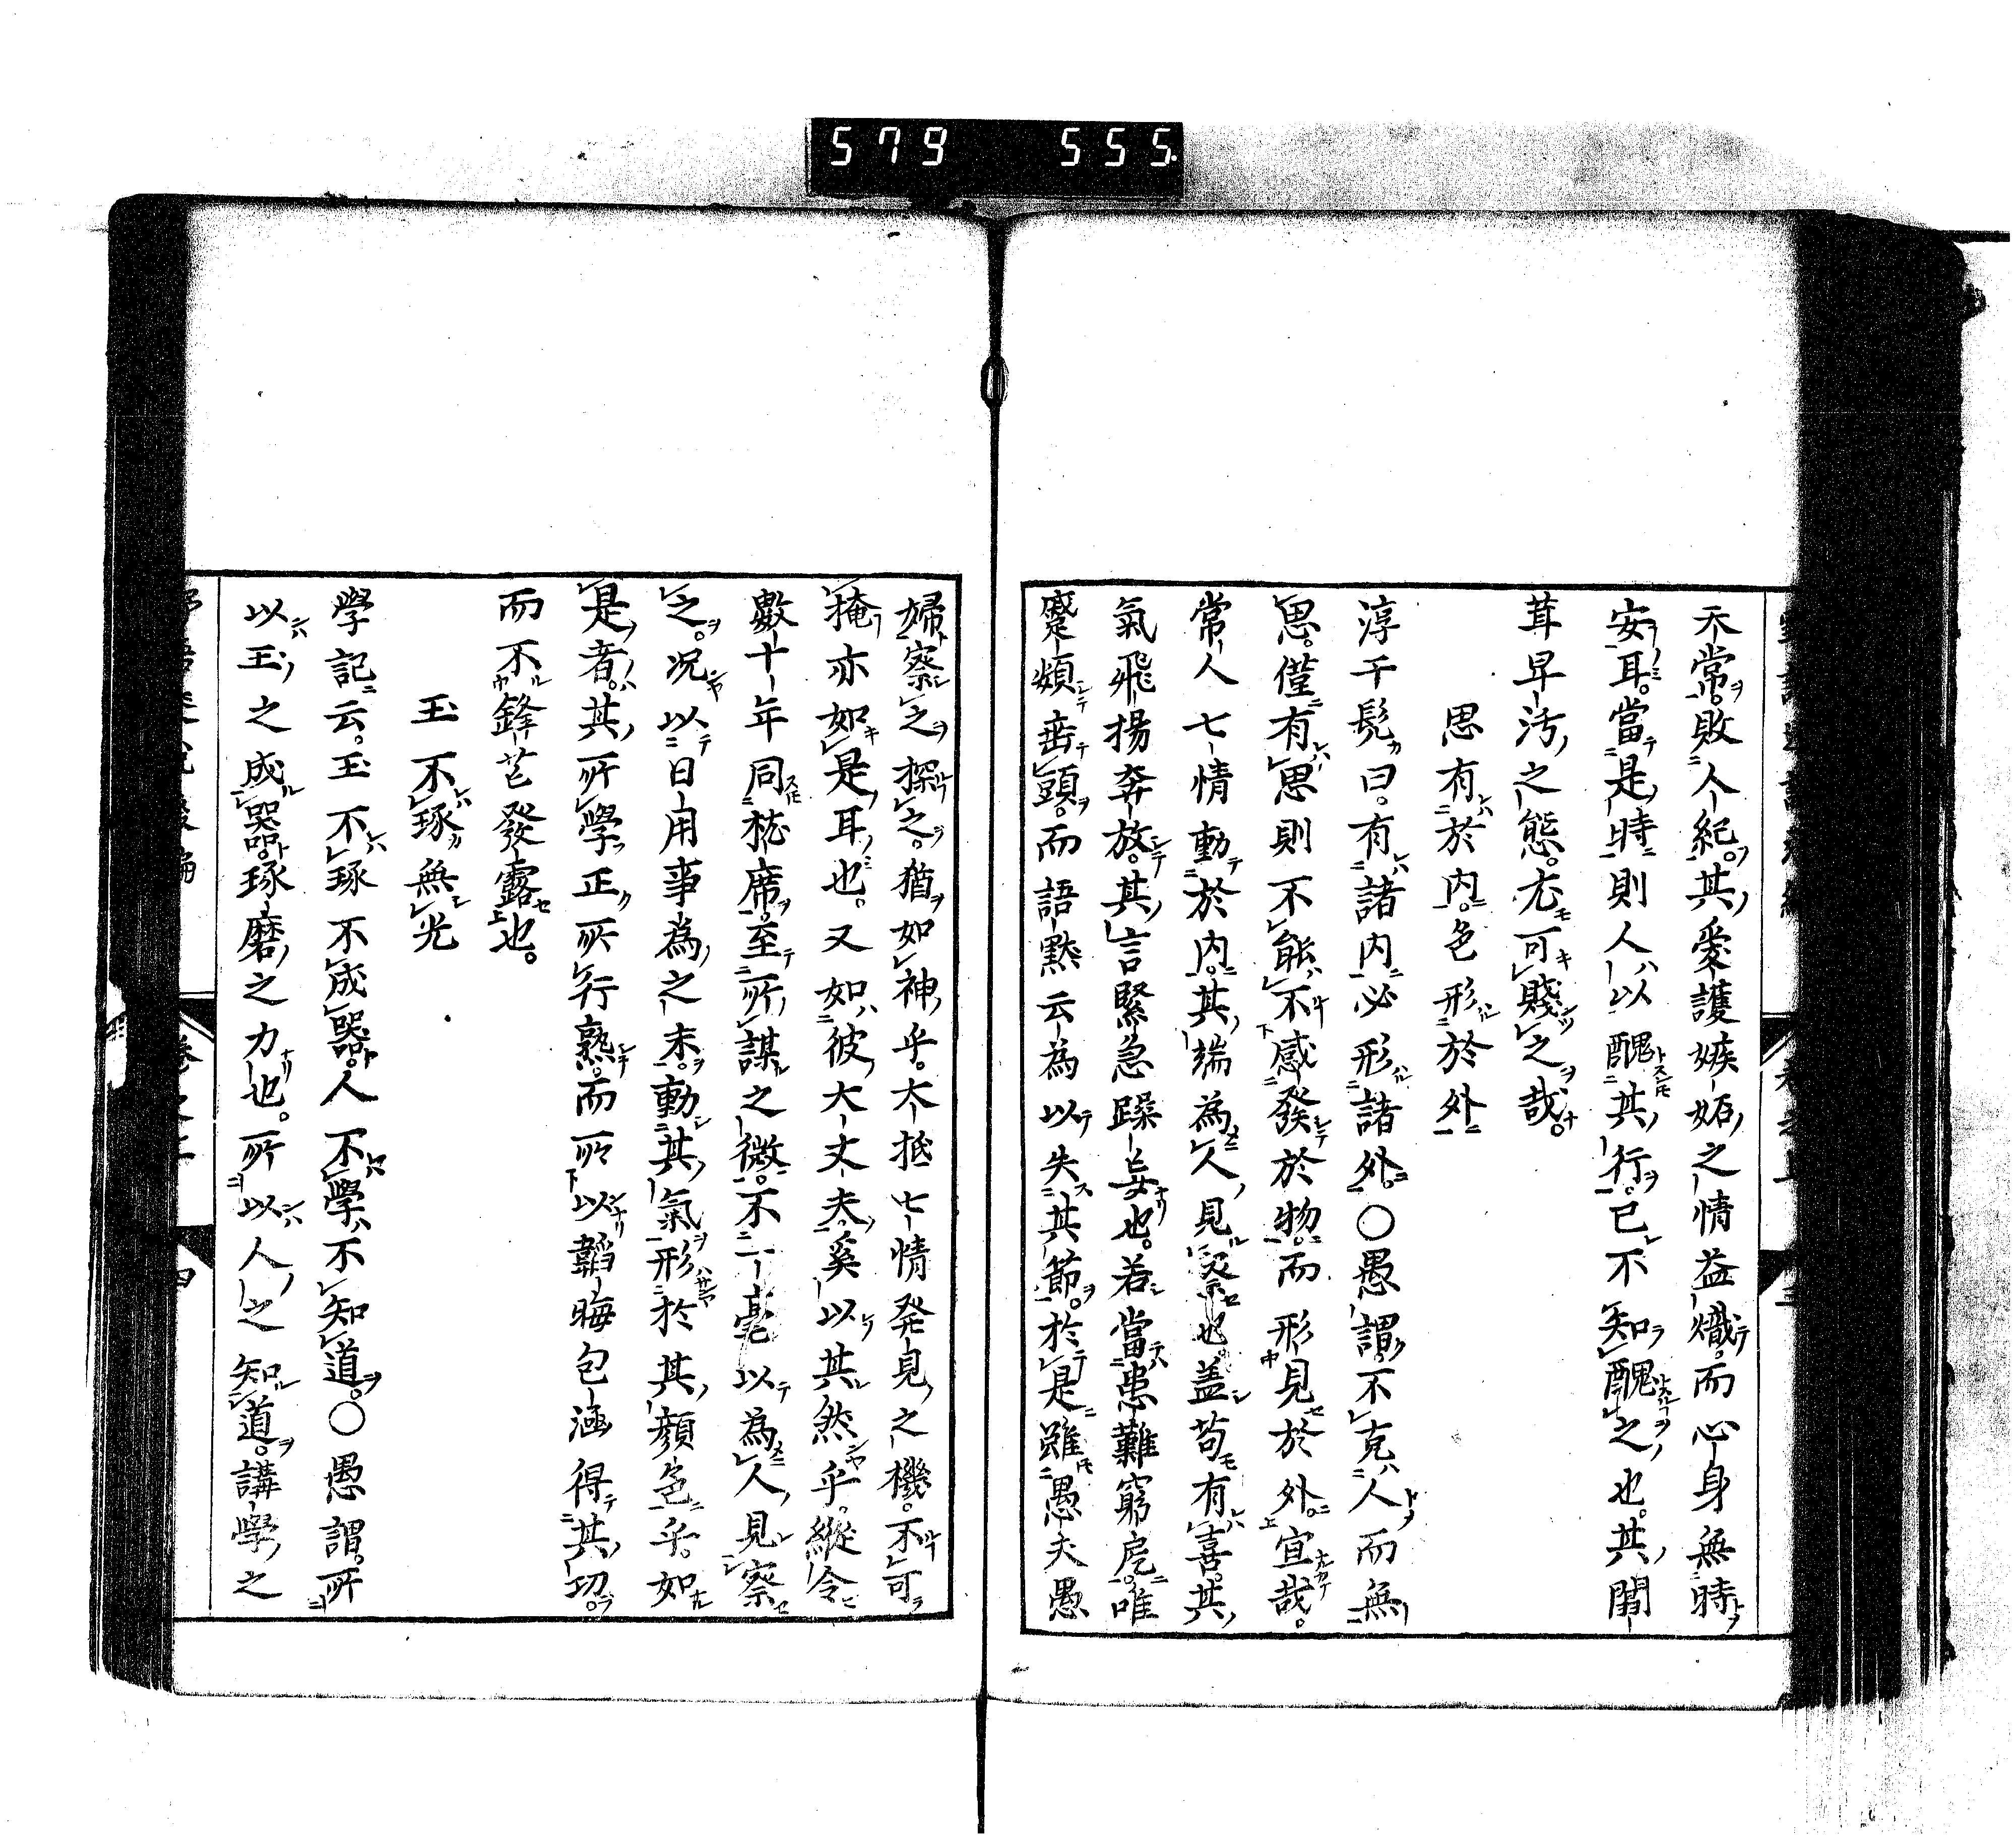 579 555
天常敗人紀其愛護嫉妬之情益熾而心身無時
安耳當是時則人以醜其行已不知醜之也其闒
茸早汚之態尤可賤之哉
思有於内色形於外
淳于髡曰有諸内必形諸外〇愚謂不克人而無
思僅有思則不能不感發於物而形見於外宜哉
常人七情動於内其端為人見察也盖苟有喜其
氣飛揚奔放其言緊急躁妄也若當患難窮戹唯
蹙頞垂頭而語黙云為以失其節於是雖愚夫愚
婦察之探之猶如神乎大抵七情発見之機不可
掩亦如是耳也又如彼大丈夫奚以其然乎縱令
數十年同枕席至所謀之微不一毫以為人見察
之况以日用事為之末動其氣形於其顏色乎如
是者其所學正所行熟而所以韜晦包涵得其切
而不鋒芒發露也
玉不琢無光
學記云玉不琢不成器人不學不知道〇愚謂所
以玉之成器琢磨之力也所以人之知道講學之